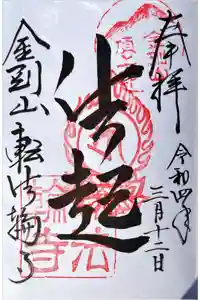 奉拝
令和四年
三月十二日
法起
金剛山転法輪寺